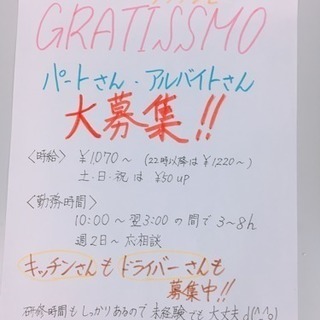 GRATISSMO
パートさん・アルバイトさん
大募集!!
〈時給〉 ¥1,070〜 (22時以降は¥1,220〜)
土・日・祝は ¥50 up
〈勤務時間〉
10:00〜翌3:00の間で3〜8h
週2日〜応相談
キッチンさんもドライバーさんも
募集中!!
研修時間もしっかりあるので未経験でも大丈夫d(^_^o)